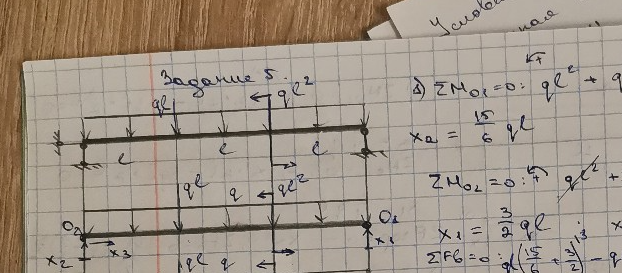 Условия
ная
Задание 5.
ql
ql²
l
l
l
ql
q
ql²
O₂
O₁
x₃
x₂
x₁
ql q
1) ΣM₀₁=0: ql² + q
x₂ = 15/6 ql
ΣM₀₂=0: ql² +
x₁ = 3/2 ql
ΣFв=0: q(15/6 + 3/2) - q